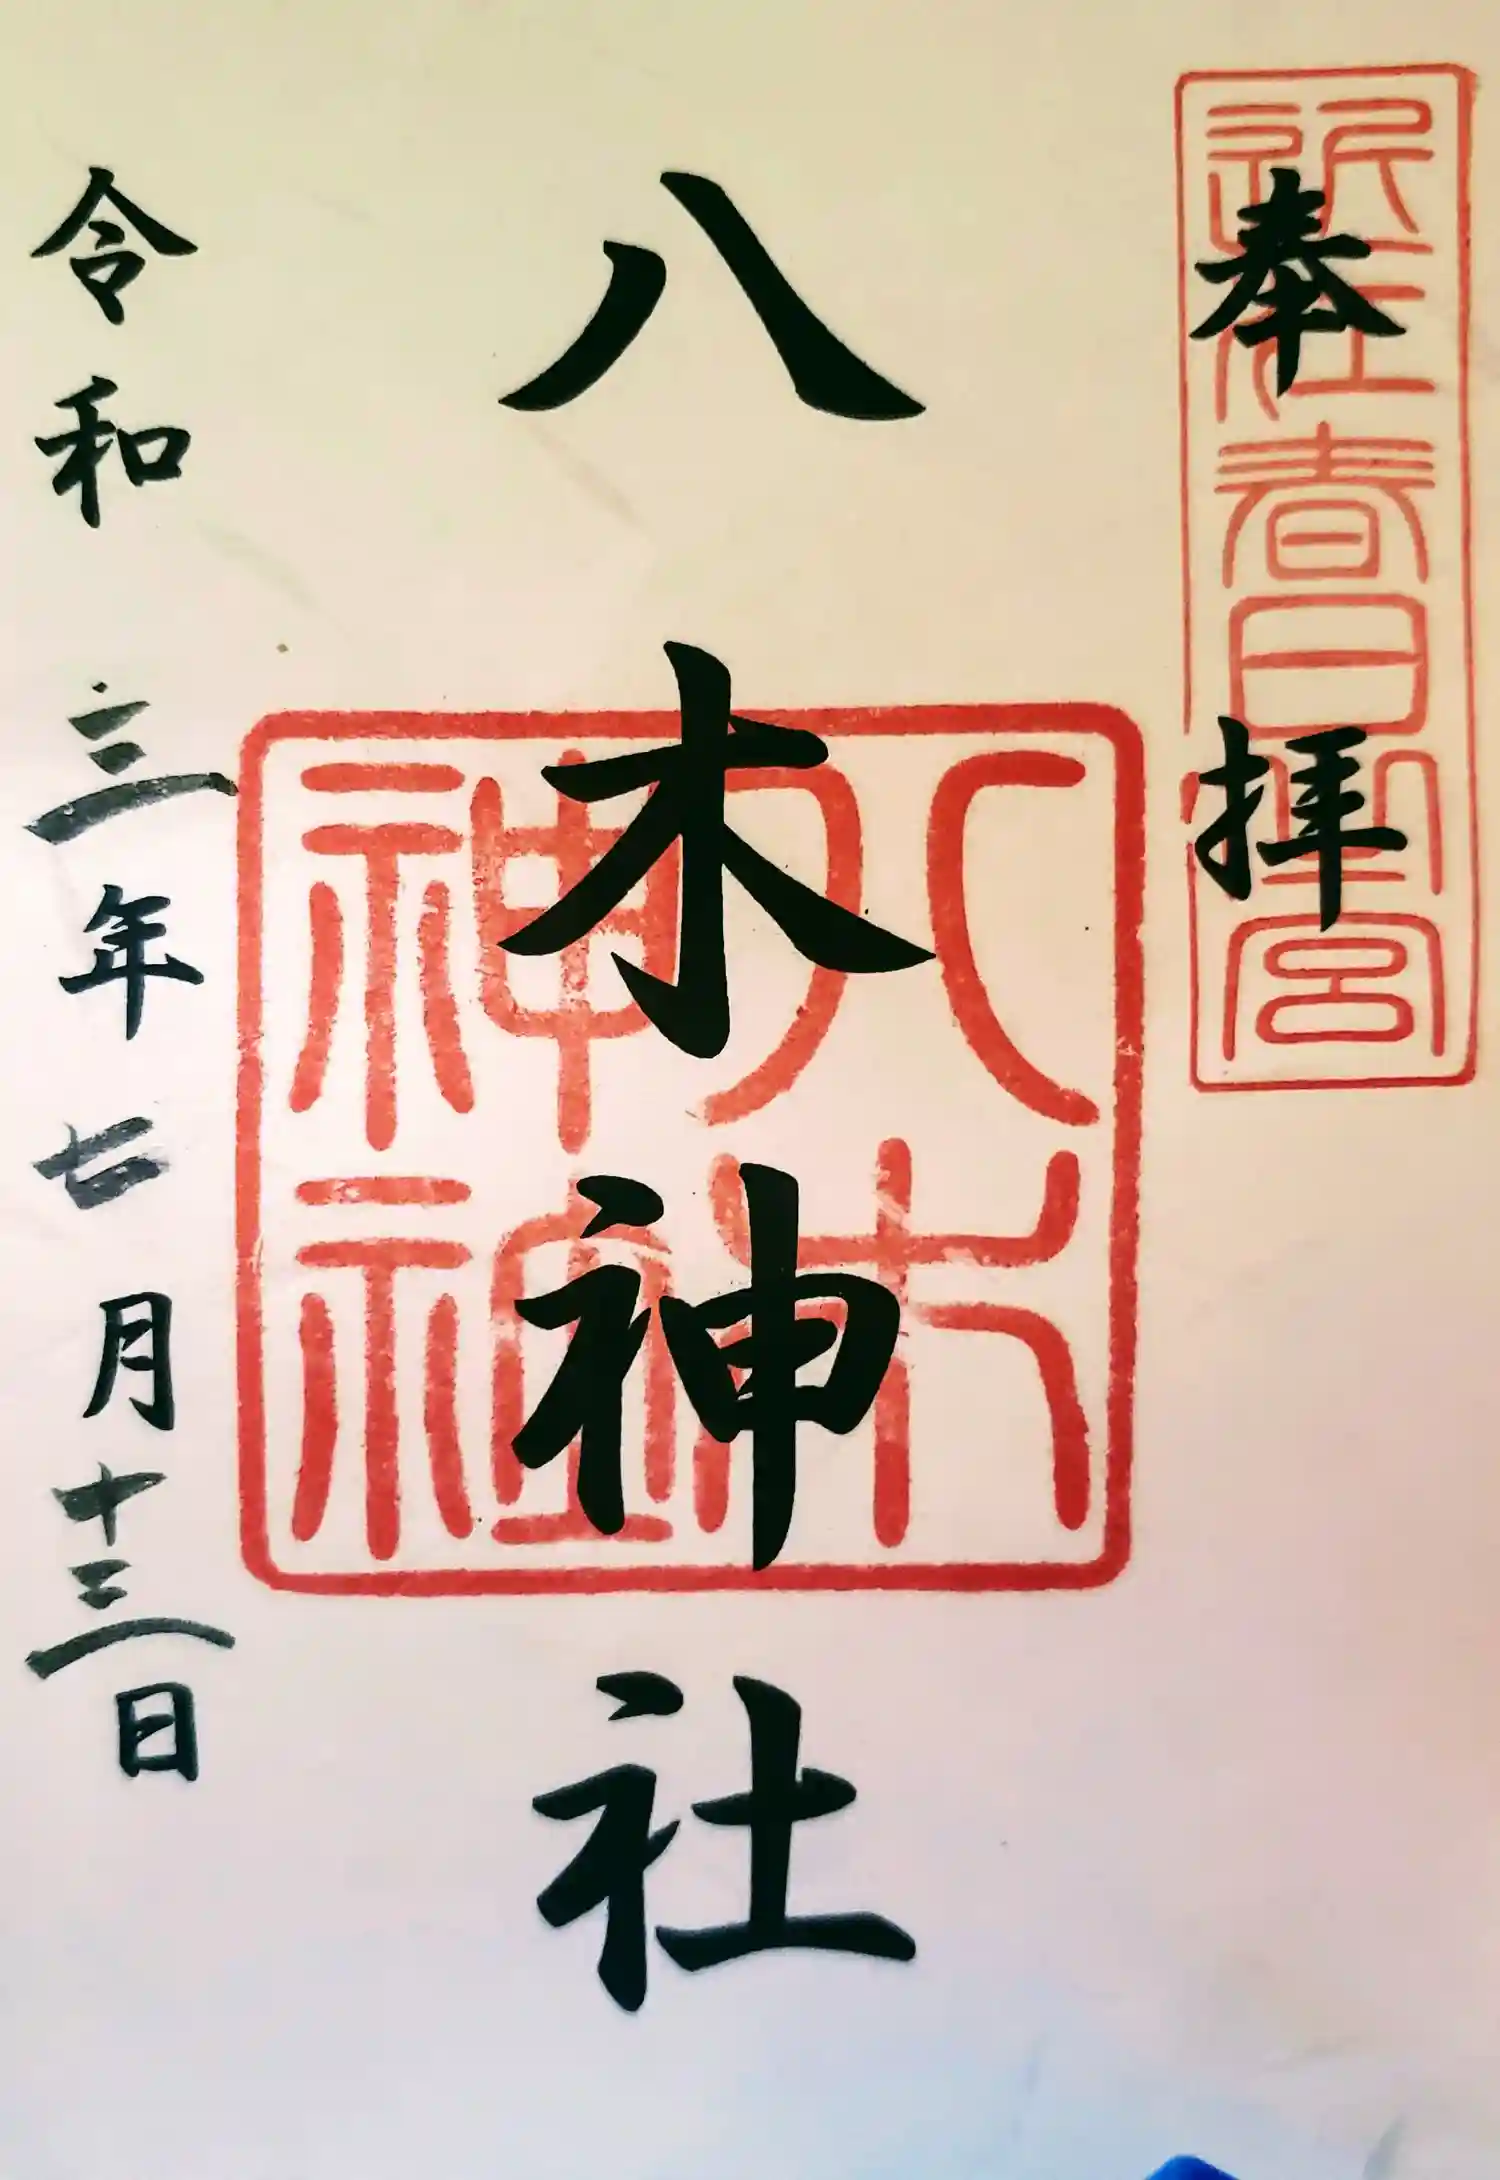 奉拝
春日
宮
八木神社
八木
神社
令和三年七月十三日